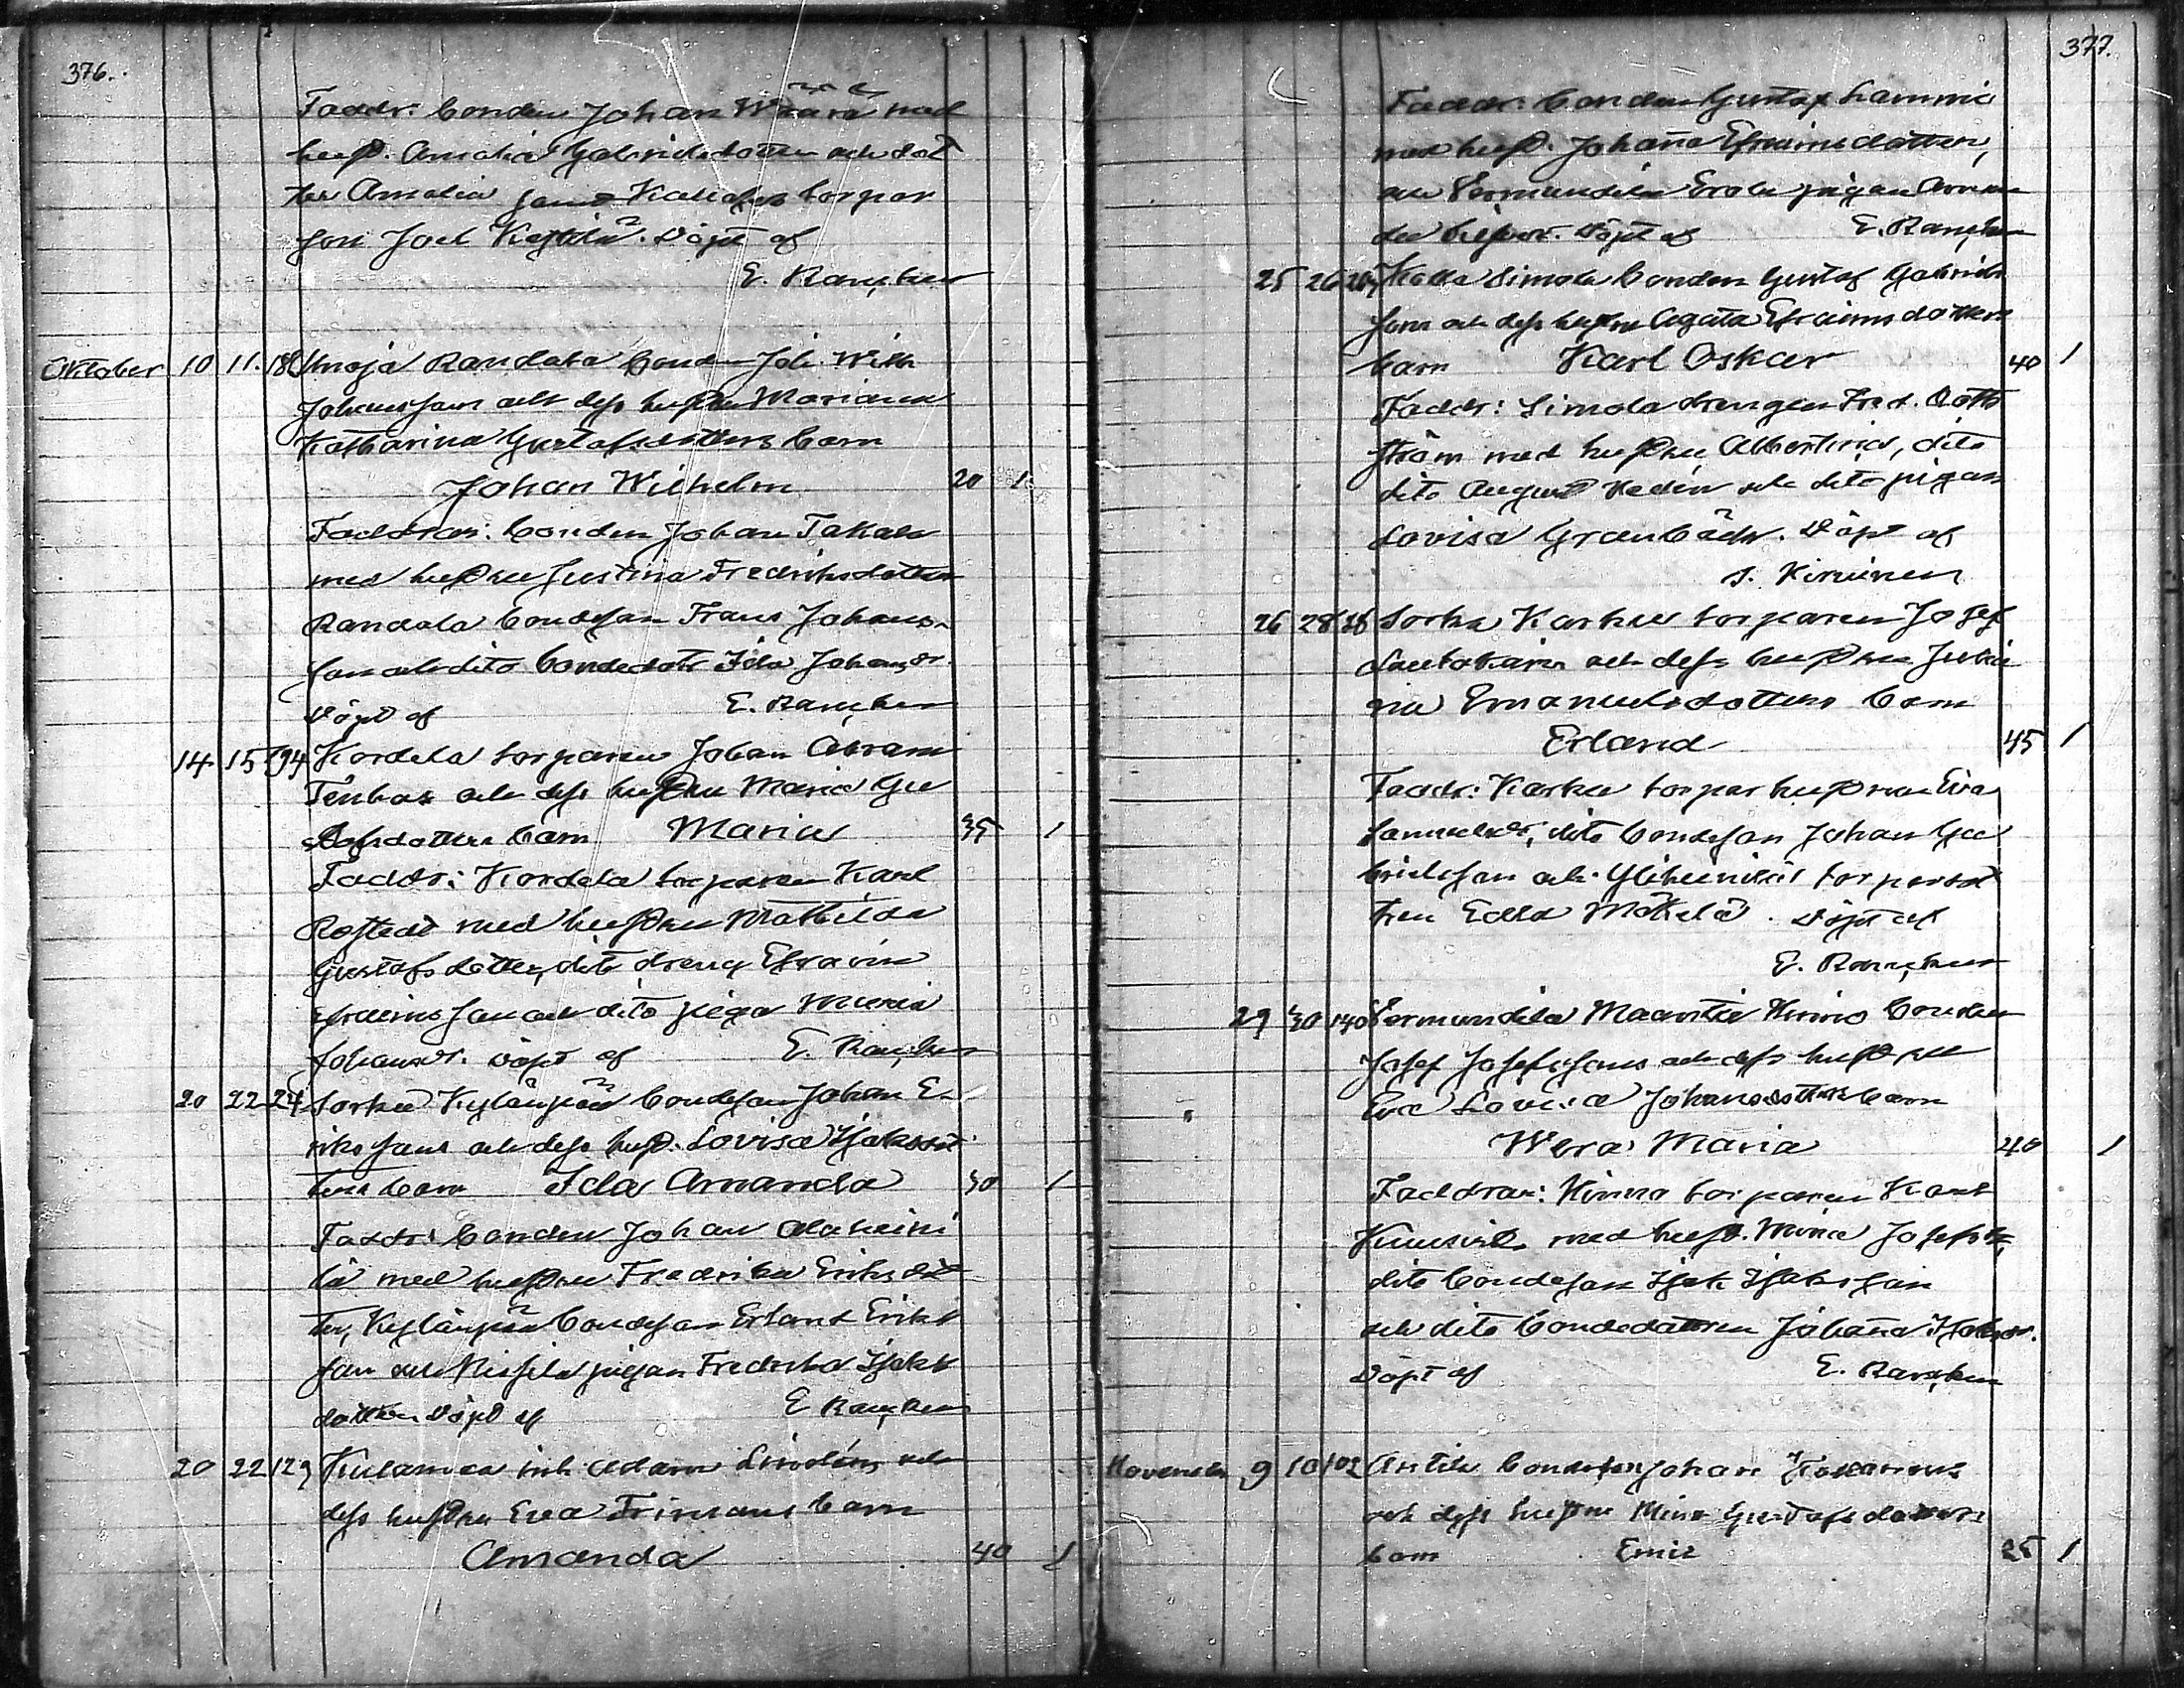 376.
Faddr: bonden Johan Wäärä med
hust. Amalia Gabrielsdotter och dot
ter Amalia samt torpar
son Joel Döpt af
E. Rancken
Oktober 10 11. Randala bonden Joh. Wilh.
Johanssons och dess hustru Mariana
Katharina Gustafsdotters barn
Johan Wilhelm 20 1
Faddrar: bonden Johan Takala
med hustru Justina Fredriksdotter
Randala bondeson Frans Johans-
son och dito bondedotr Ida Johansdr.
Döpt af E. Rancken
14 15 194 Kordela torparen Johan Abram
och dess hustru Maria Gu
stafsdotters barn Maria 35 1
Faddr: Kordela torparen Karl
Rostedt med hustru Mathilda
Gustafsdotter, dito dreng Efraim
Efraimsson och dito piga Maria
Johansdr. Döpt af E. Rancken
20 22 24 Sorku Kylänpää bondeson Johan E-
riks sons och dess hust. Lovisa Isaksdot
ters barn Ida Amanda 30 1
Faddr: bonden Johan Alaheiki
lä med hustru Fredrika Eriksdot
ter, Kylänpää bondeson Erland Eriks
son och pigan Fredrika Isaks
dotter Döpt af E Rancken
20 22 129 inh. Adam Lindéns och
dess hustru Eva Frimans barn
Amanda 40 1
377.
Faddr: bonden Gustaf Lammi
med hust. Johanna Efraimsdotter,
och Vermundila Erola pigan
Döpt af E. Rancken
25 26 Simola bonden Gustaf Gabriels
sons och dess hustru Agata Efraimsdotters
barn Karl Oskar 40 1
Faddr: Simola drengen Fred.
ström med hustru Albertina, dito
dito August Hedén och dito pigan
Lovisa Grönbäck. Döpt af
J. Kiminen
26 28 Sorkka Karhu torparen Josef
och dess hustru
na Emanuelsdotters barn
Erland 45 1
Faddr: Karhu torpar hustrun Eva
Samuelsdr, dito bondeson Johan Ga
brielsson och torpardot
tren Edla Mäkelä. Döpt af
E. Rancken
29 30 140 Vermundila Maantie Kinno bonden
Josef Josefssons och dess hustru
Eva Lovisa Johansdotters barn
Wera Maria 40 1
Faddrar: Kinno torparen Karl
med hust. Mina Josefsdr,
dito bondeson Isak Isaksson
och dito bondedottren Johanna Isaksdr.
Döpt af E. Rancken
November 9 10 102 Anttila bondeson Johan
och dess hustru Mina Gustafsdotters
barn Emil 25 1